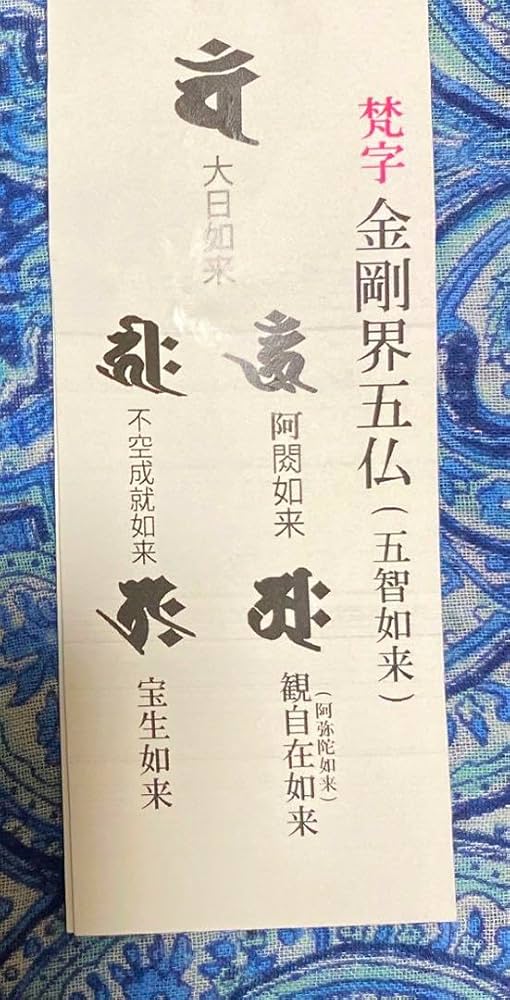 梵字 金剛界五仏（五智如来）
大日如来
阿閦如来
不空成就如来
観自在如来
（阿弥陀如来）
宝生如来